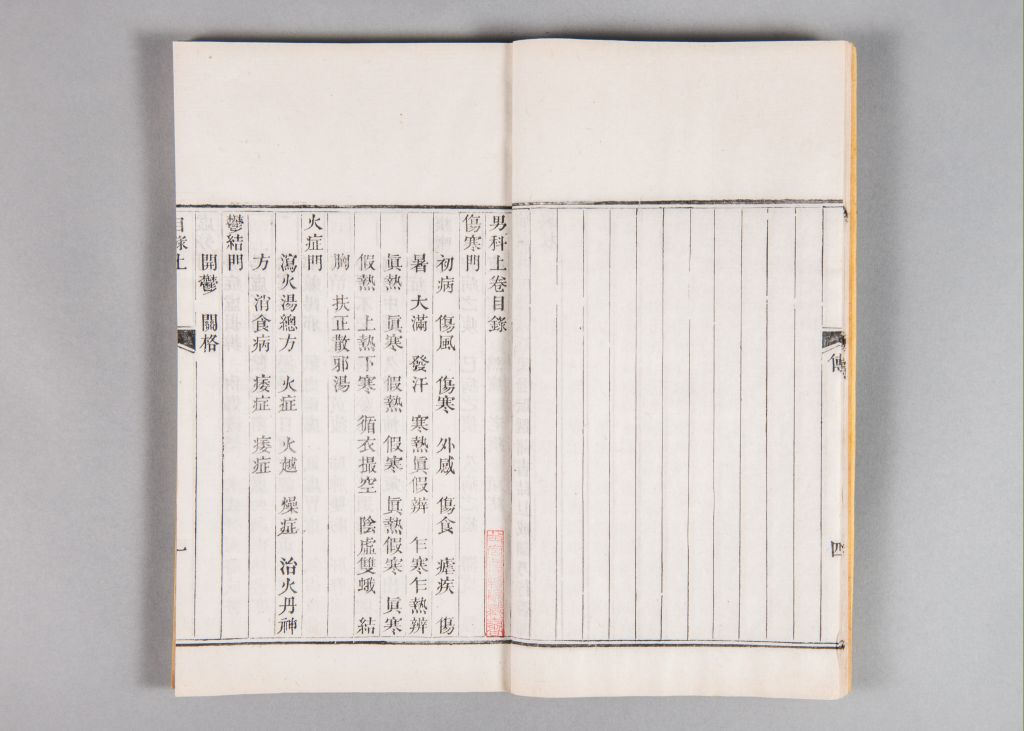 傳
四
男科上卷目錄
傷寒門
初病 傷風 傷寒 外感 傷食 瘧疾 傷
暑 大滿 發汗 寒熱眞假辨 乍寒乍熱辨
眞熱 眞寒 假熱 假寒 眞熱假寒 眞寒
假熱 上熱下寒 循衣撮空 陰虛雙蛾 結
胸 扶正散邪湯
火症門
瀉火湯總方 火症 火越 燥症 治火丹神
方 消食病 痿症 痿症
鬱結門
開鬱 關格
目錄上
一